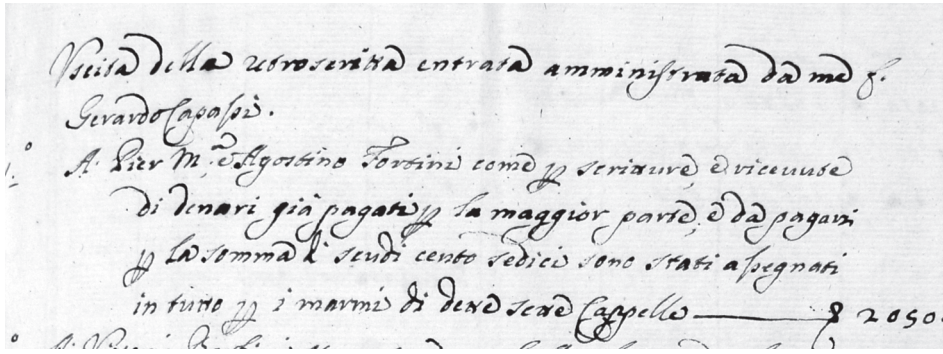 Uscita della retroscritta entrata amministrata da me f.
Gerardo Capassi.
A. Pier M.ª e Agostino Fortini come p scritture e ricevute
di denari già pagati p la maggior parte, e da pagarsi
p la somma di scudi cento sedici sono stati assegnati
in tutto p i marmi di dette sette Cappelle — 2050.